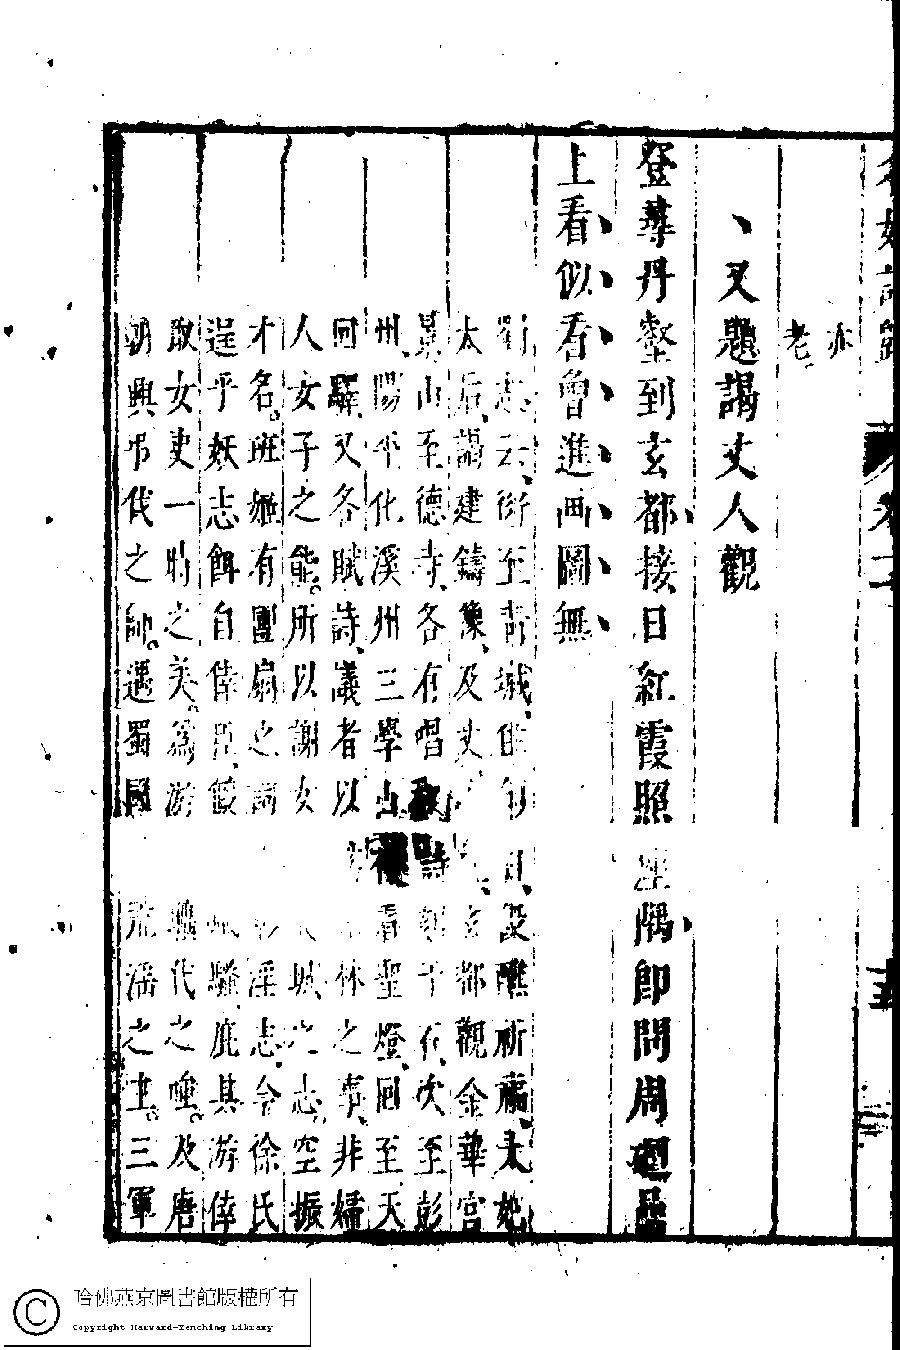 亦
老
又題謁丈人觀
登尋丹壑到玄都接日紅霞照座隅即問周廻
上看似看曾進画圖無
蜀志云衍至青城住旬設醮祈福太妃
太后謁建鑄像及丈玄都觀金華宮
景山至德寺各有唱詩于石次至彭
州陽平化溪州三學山看聖燈回至天
回驛又各賦詩議者以林之事非婦
人女子之能所以謝女城之志空振
才名班姬有團扇之詞淫志今徐氏
逞乎妖志餌自倖臣假風騷庇其游倖
取女史一時之美爲游代之唾及唐
朝興弔伐之師遇蜀國荒淫之主三軍
哈佛燕京圖書館版權所有
Copyright Harvard-Yenching Library